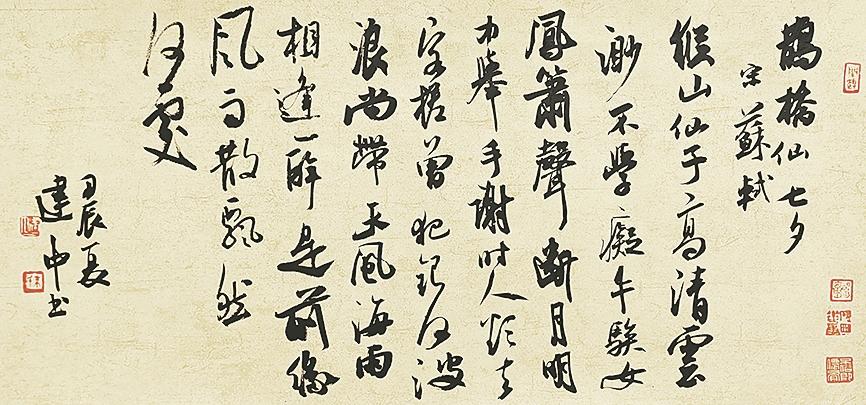 鵲橋仙 七夕
宋 蘇軾
緱山仙子高清雲
渺不學癡牛騃女
鳳簫聲斷月明
中舉手謝時人欲去
客槎曾犯銀河波
浪尚帶天風海雨
相逢一醉是前緣
風雨散飄然
何處
壬辰夏
建中书